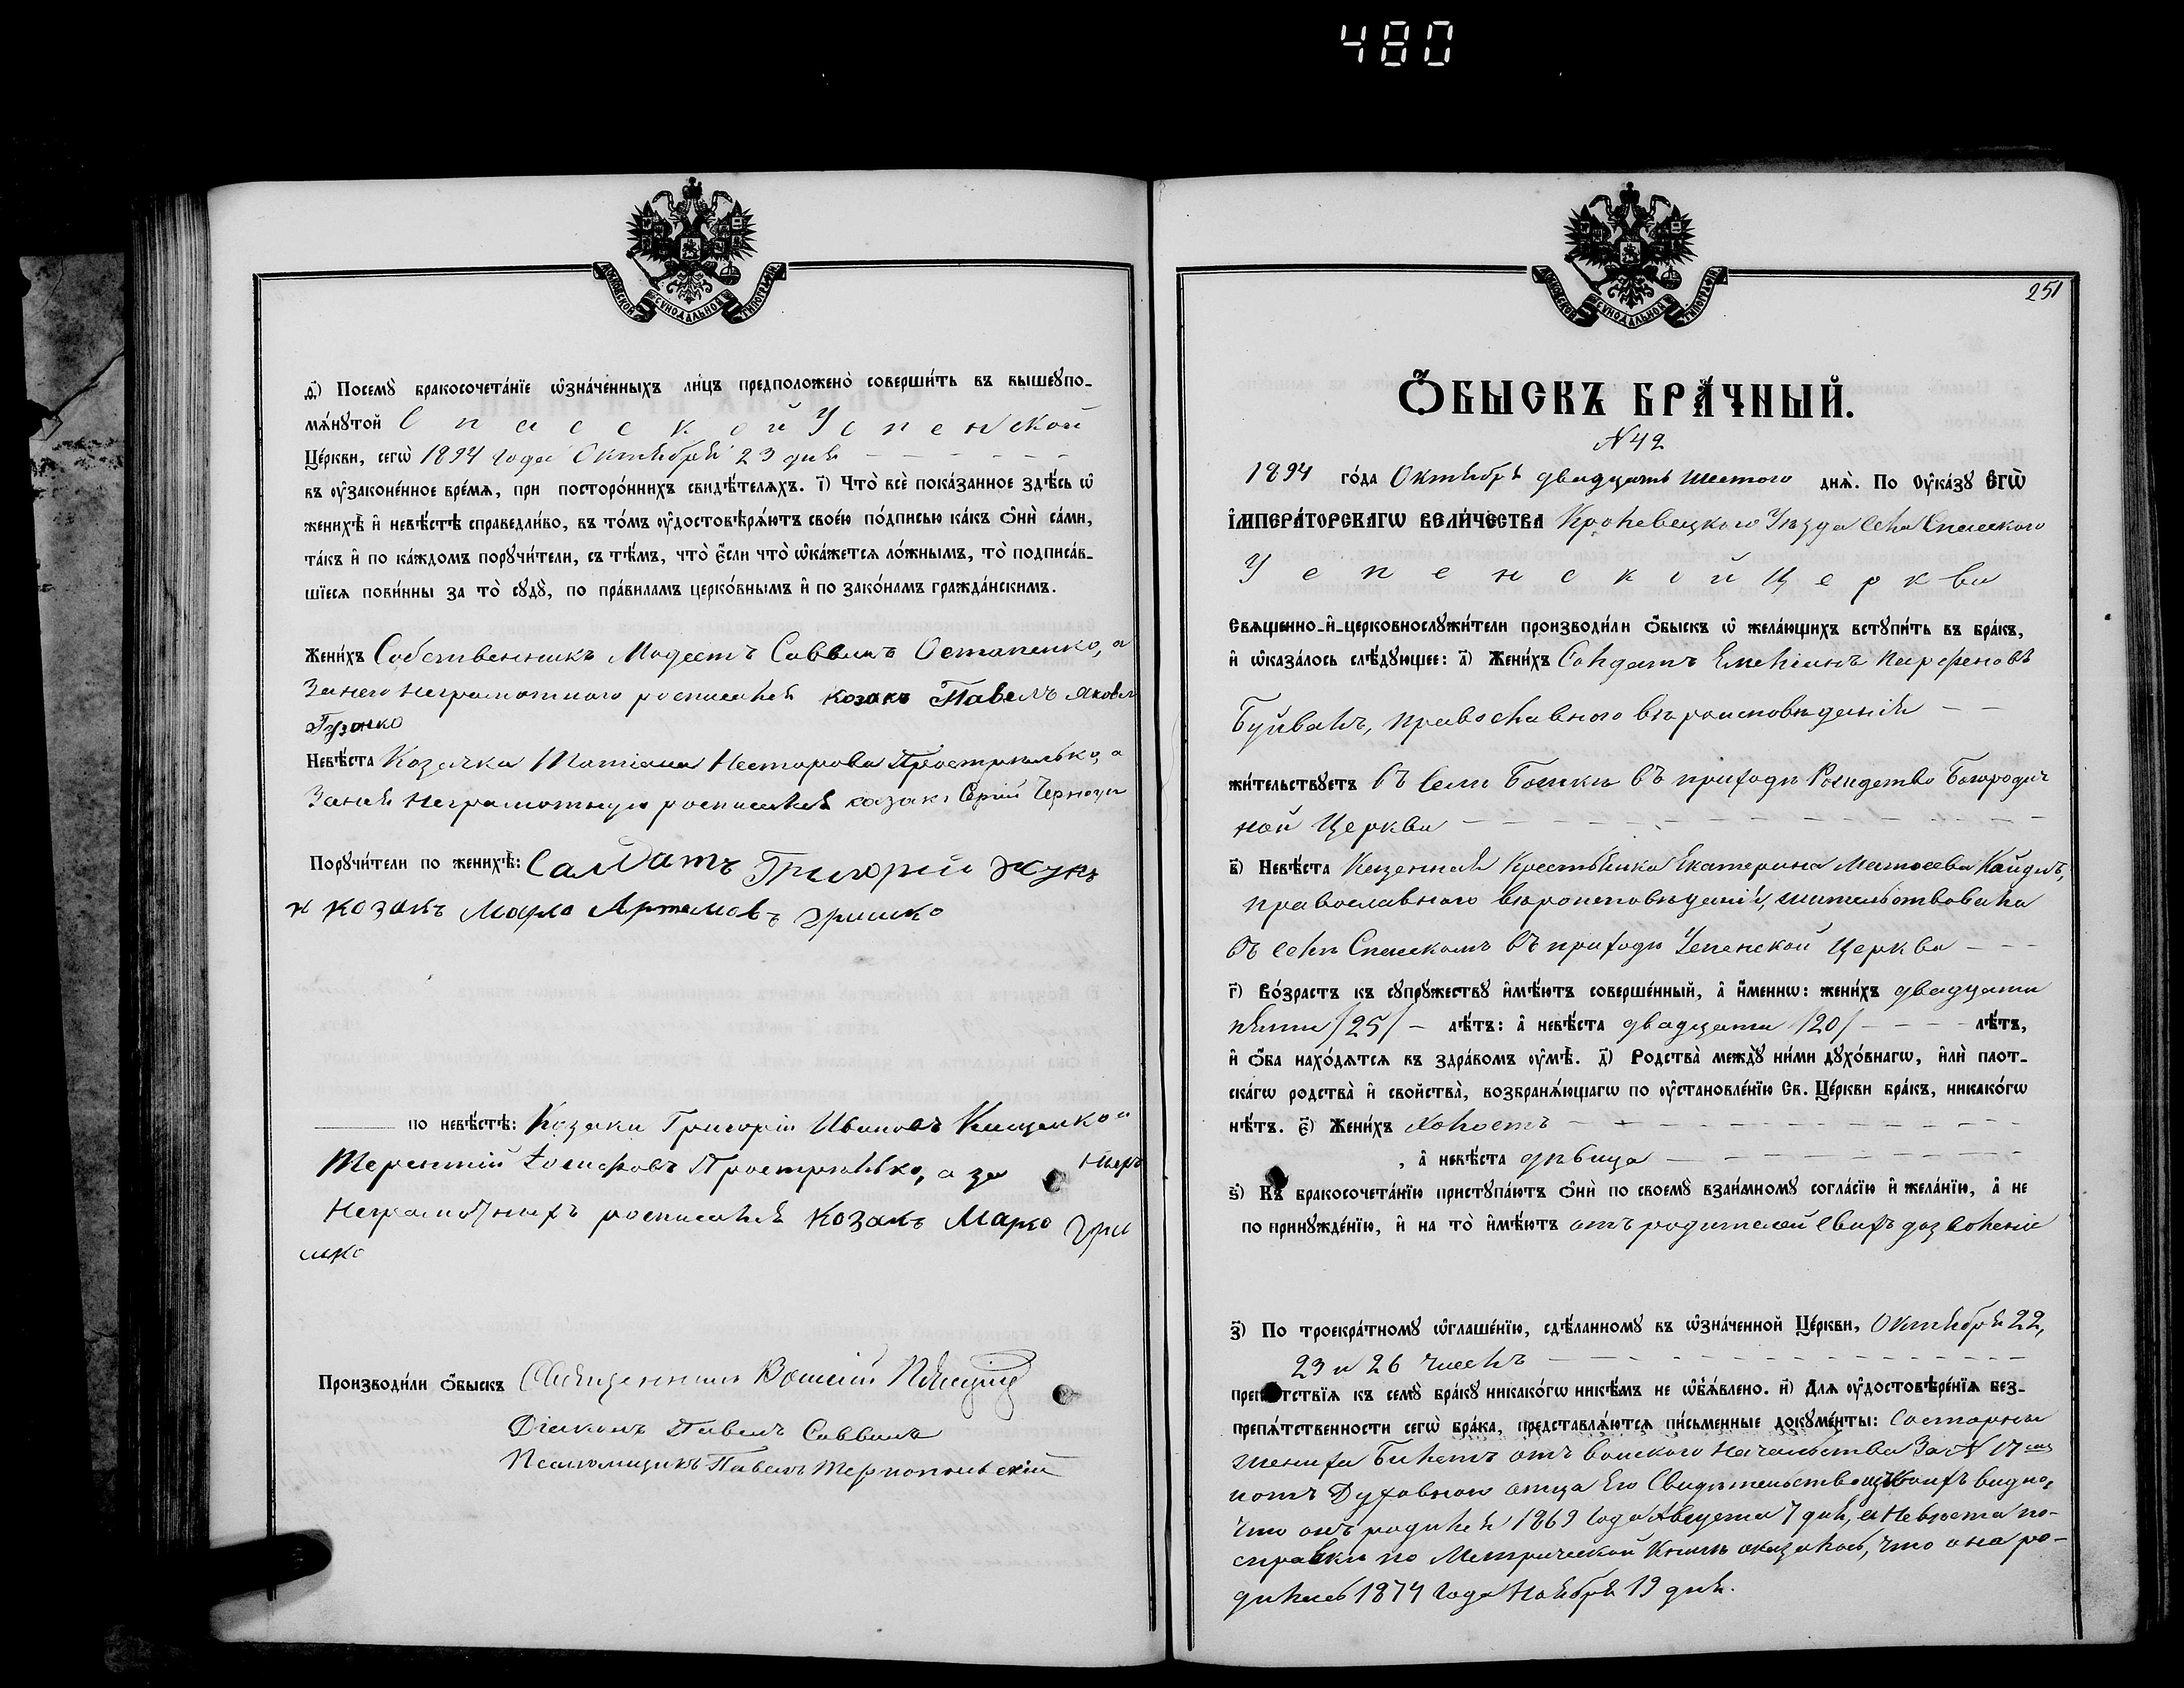 480
МОСКОВСКОЙ СѴНОДАЛЬНОЙ ТИПОГРАФІИ
ѳ҃) Посемꙋ̀ бракосочета́нїе ѡ҆зна́ченныхъ ли́цъ предположено̀ соверши́ть въ вышеꙋпо-
мѧ́нꙋтой Спасской Успенской
Це́ркви, сегѡ̀ 1894 года Октября 23 дня
въ ᲂу҆законе́нное вре́мѧ, при посторо́ннихъ свидѣ́телѧхъ. і҃) Что̀ всѐ пока́занное здѣ́сь ѡ҆
женихѣ̀ и҆ невѣ́стѣ справедли́во, въ то́мъ ᲂу҆достовѣрѧ́ютъ свое́ю по́дписью ка́къ ѻ҆нѝ са́ми,
та́къ и҆ по ка́ждомъ порꙋчи́тели, съ тѣ́мъ, что̀ є҆́сли что̀ ѡ҆ка́жетсѧ ло́жнымъ, то̀ подписа́в-
шїесѧ пови́нны за то̀ сꙋдꙋ̀, по пра́виламъ церко́внымъ и҆ по зако́намъ гражда́нскимъ.
Жени́хъ Собственникъ Модестъ Саввинъ Остапенко, а
За него неграмотного росписался козакъ Павелъ Яковл
Гузонко
Невѣ́ста Козачка Татіана Несторова Простроилько, а
За нея неграмотную росписался казакъ Сергій
Порꙋчи́тели по женихѣ̀: Салдатъ Григорій Жукъ
и козакъ Марко Артемовъ Гришко
по невѣ́стѣ: Козаки Григорій Ивановъ Кищенко и
Терентій Іосифовъ а за
Неграмотныхъ росписался Козакъ Марко Гри
шко
Производи́ли ѻ҆́быскъ Священникъ Василій
Діаконъ Павелъ Саввинъ
Псаломщикъ Павелъ
МОСКОВСКОЙ СѴНОДАЛЬНОЙ ТИПОГРАФІИ
251
Ѻ҆́БЫСКЪ БРА́ЧНЫЙ.
N 42
1894 го́да Октября двадцать шестого днѧ̀. По Оу҆ка́зꙋ Є҆ГѠ̀
І҆МПЕРА́ТОРСКАГѠ ВЕЛИ́ЧЕСТВА Кролевецкого Уѣзда села Спасского
Успенской Церкви
Свѧщенно-и҆-церковнослꙋжи́тели производи́ли ѻ҆́быскъ ѡ҆ жела́ющихъ встꙋпи́ть въ бра́къ,
и҆ ѡ҆каза́лось слѣ́дꙋющее: а҃) Жени́хъ Солдатъ Емеліанъ Парфеновъ
Буйвалъ, православного вѣроисповѣданія
жи́тельствꙋетъ въ Селѣ въ приходѣ Рождество Богородич
ной Церкви
в҃) Невѣ́ста Казенная Крестьянка Екатерина Матѳеева Кайдилъ,
православного вѣроисповѣданія, жительствовала
въ селѣ Спасскомъ въ приходѣ Успенской Церкви
г҃) Во́зрастъ къ сꙋпрꙋ́жествꙋ и҆мѣ́ютъ соверше́нный, а҆ и҆́менно: жени́хъ двадцати
пяти /25/ лѣ́тъ: а҆ невѣ́ста двадцати /20/ лѣ́тъ,
и҆ ѻ҆́ба нахо́дѧтсѧ въ здра́вомъ ᲂу҆мѣ̀. д҃) Родства̀ междꙋ̀ ни́ми дꙋхо́внагѡ, и҆лѝ плот-
ска́гѡ родства̀ и҆ свойства̀, возбранѧ́ющагѡ по ᲂу҆становле́нїю Св. Це́ркви бра́къ, никако́гѡ
нѣ́тъ. є҃) Жени́хъ Холостъ
, а҆ невѣ́ста дѣвица
ѕ҃) Къ бракосочета́нїю пристꙋпа́ютъ ѻ҆нѝ по своемꙋ̀ взаи́мномꙋ согла́сїю и҆ жела́нїю, а҆ не
по принꙋжде́нїю, и҆ на то̀ и҆мѣ́ютъ отъ родителей своихъ дозволеніе
з҃) По троекра́тномꙋ ѡ҆глаше́нїю, сдѣ́ланномꙋ въ ѡ҆зна́ченной Це́ркви, Октября 22,
23 и 26 числъ
препѧ́тствїѧ къ семꙋ̀ бра́кꙋ никако́гѡ никѣ́мъ не ѡ҆бъѧ́влено. и҃) Длѧ ᲂу҆достовѣре́нїѧ без-
препѧ́тственности сегѡ̀ бра́ка, представлѧ́ютсѧ пи́сьменные докꙋме́нты: со стороны
жениха Билетъ отъ воинского Начальства За N 17
и отъ Духовного отца Его Свидѣтельство изъ коихъ видно,
Что онъ родился 1869 года Августа 7 дня, а Невѣста по-
справки по Метрической Книгѣ оказалось, что она ро-
дилась 1874 года Ноября 19 дня.